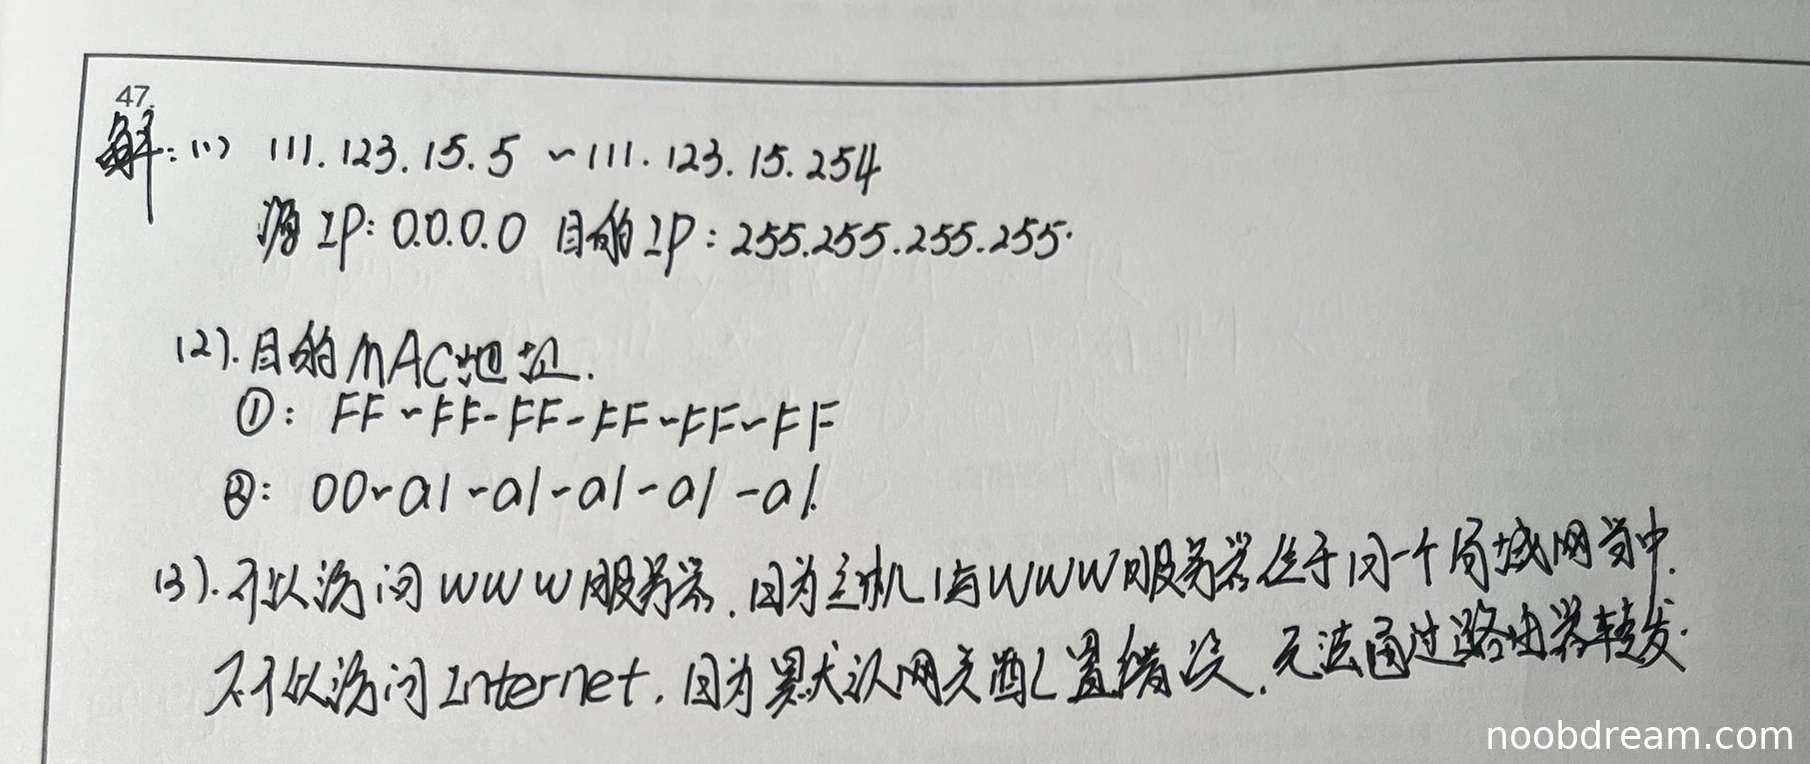 47.
解:(1) 111.123.15.5 ~111.123.15.254
源IP:0.0.0.0 目的IP:255.255.255.255.
(2).目的MAC地址.
①: FF-FF-FF-FF-FF-FF
②: 00-a1-a1-a1-a1-a1.
(3).可以访问WWW服务器.因为主机1与WWW服务器位于同一个局域网当中.
不可以访问Internet.因为默认网关配置错误.无法通过路由器转发.
noobdream.com